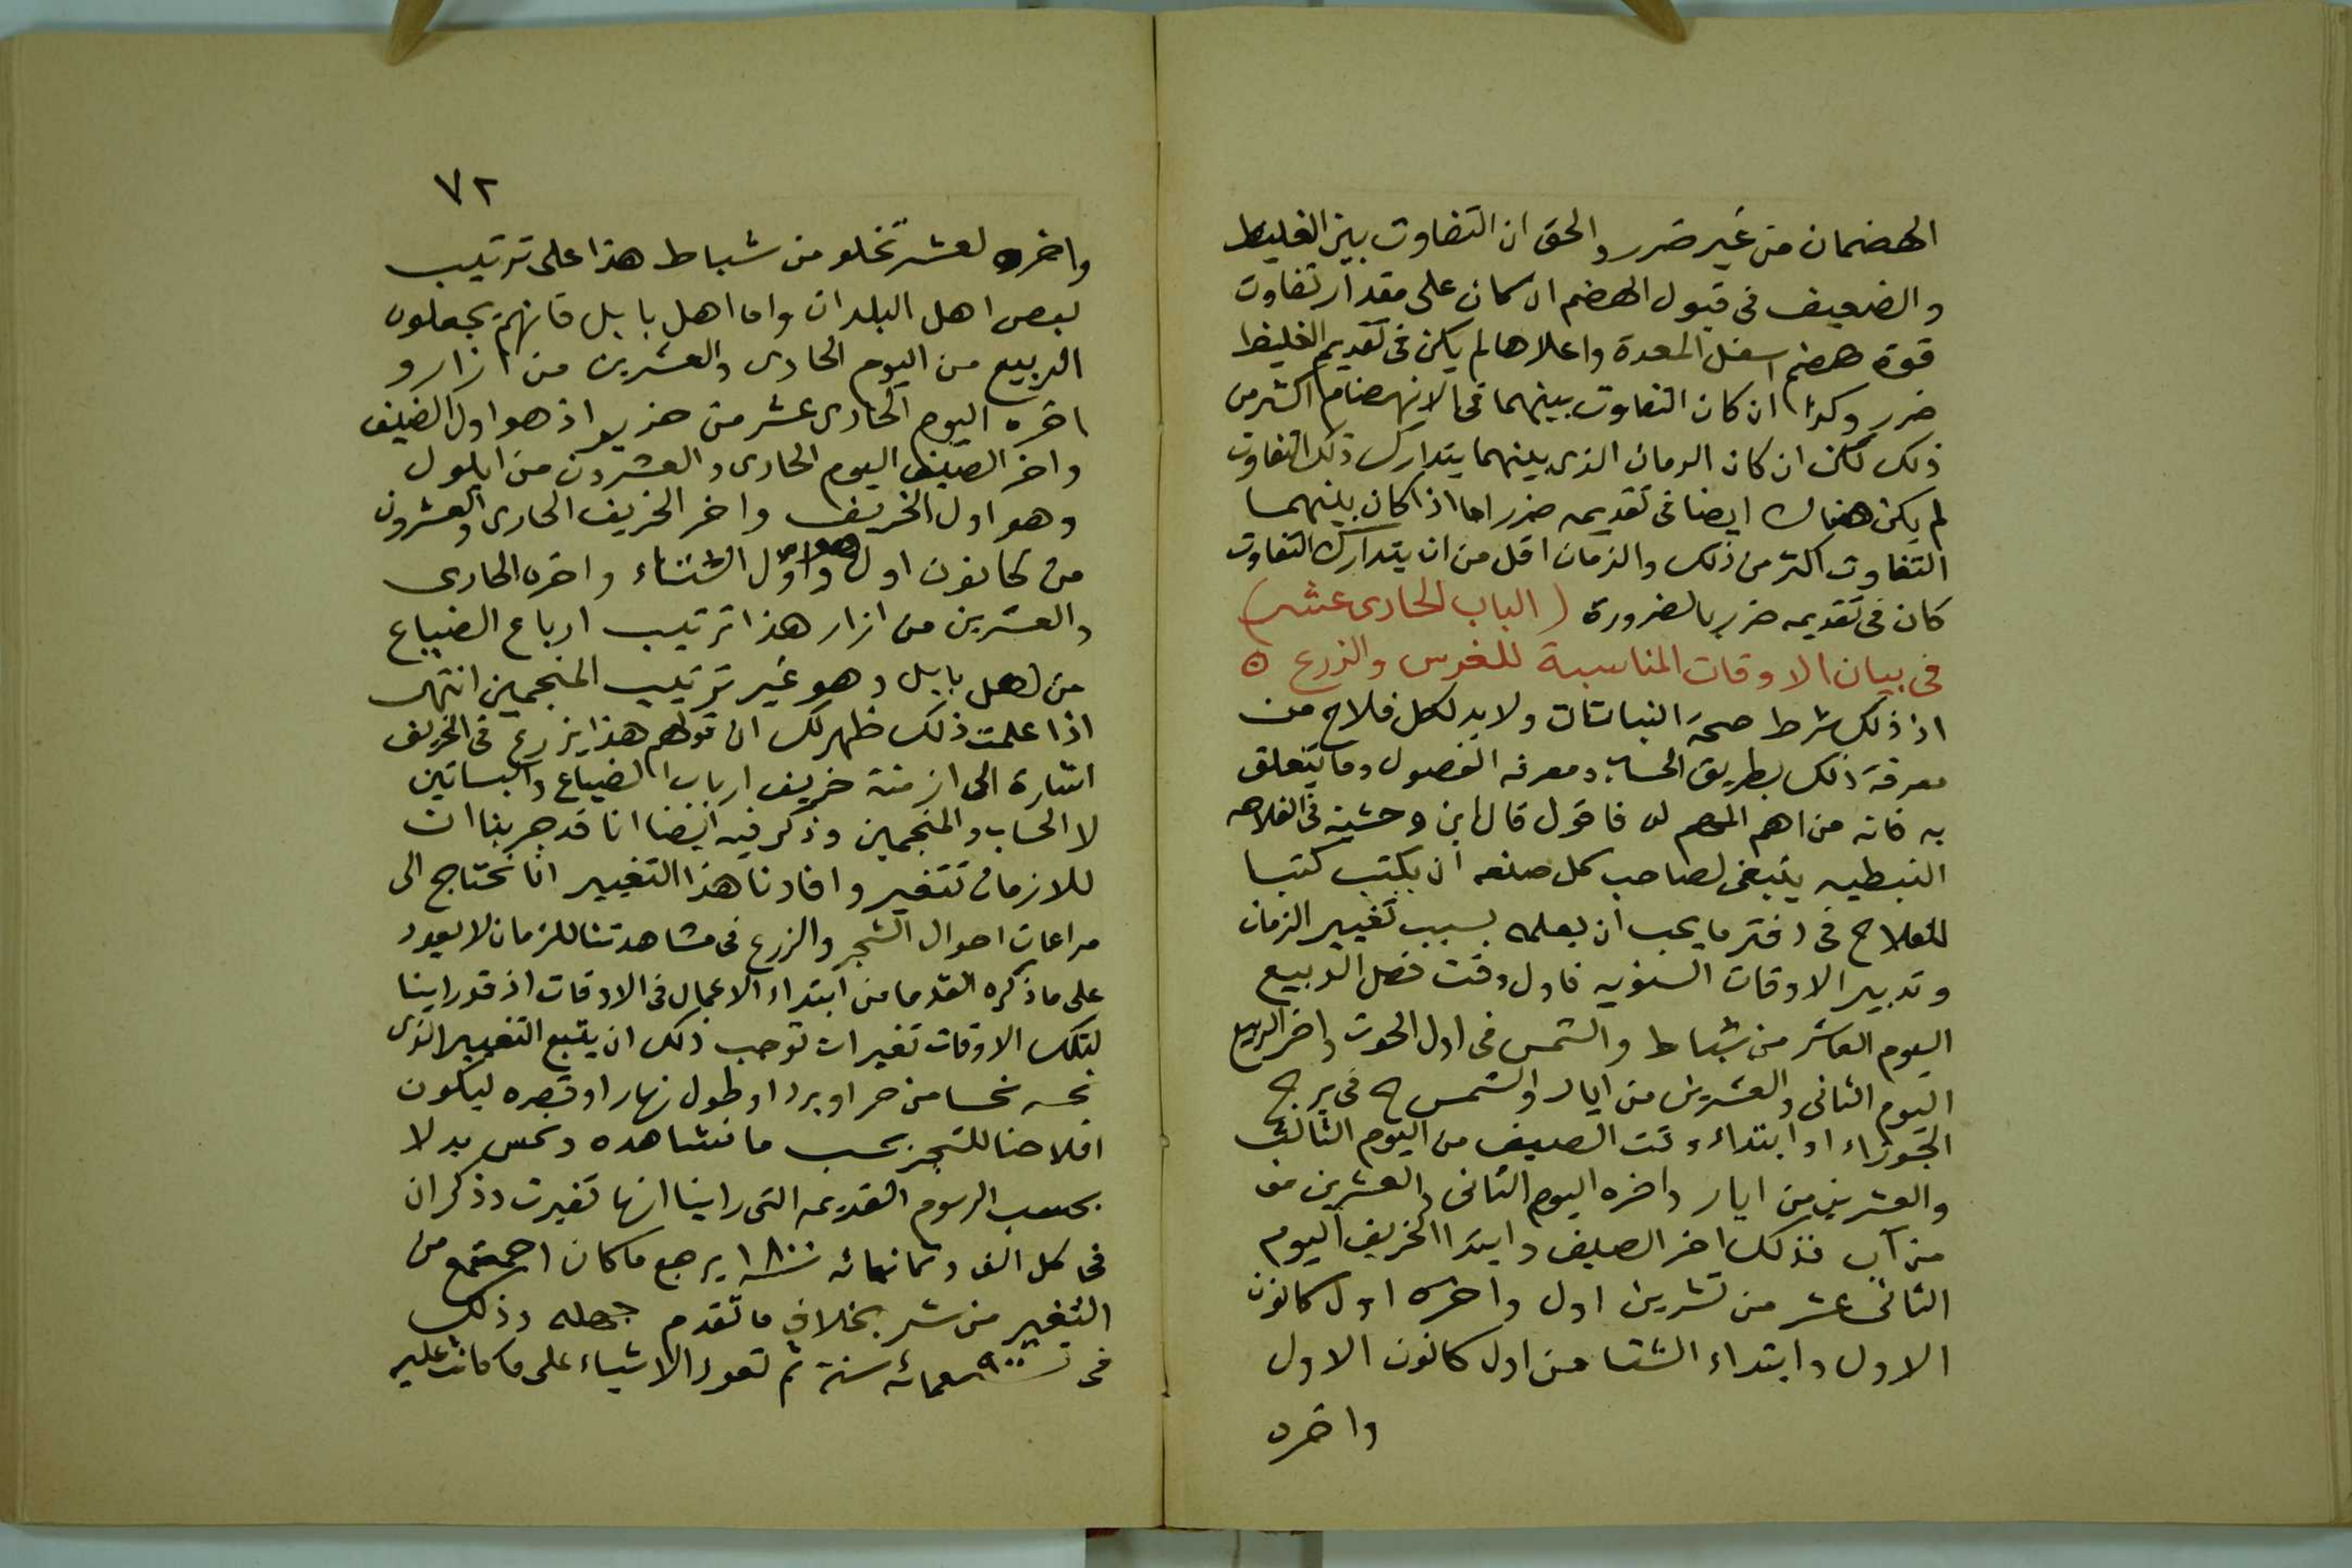 الهضمان من غير ضرر والحق ان التفاوت بين الغليظ
والضعيف فى قبول الهضم ان كان على مقدار تفاوت
قوة هضم اسفل المعدة واعلاها لم يكن فى تقديم الغليظ
ضرر وكذا ان كان التفاوت بينهما فى الانهضام اكثر من
ذلك لكن ان كان الزمان الذى بينهما يتدارك ذلك التفاوت
لم يكن هناك ايضا فى تقديمه ضرر اما اذا كان بينهما
التفاوت اكثر من ذلك والزمان اقل من ان يتدارك التفاوت
كان فى تقديمه ضرر بالضرورة (الباب الحادى عشر)
فى بيان الاوقات المناسبة للغرس والزرع ه
اذ ذلك شرط صحة النباتات ولا بد لكل فلاح من
معرفة ذلك بطريق الحساب ومعرفه الفصول وما يتعلق
به فانه من اهم المهم له فاقول قال ابن وحشية فى الفلاحه
النبطيه ينبغى لصاحب كل صنعه ان يكتب كتبا
للفلاح فى دفتر ما يجب ان يعلمه بسبب تغيير الزمان
وتدبير الاوقات السنويه فاول وقت فصل الربيع
اليوم العاشر من شباط والشمس فى اول الحوت واخر الربيع
اليوم الثانى والعشرين من ايار والشمس ح فى برج
الجوزاء او ابتداء وقت الصيف من اليوم الثالث
والعشرين من ايار واخره اليوم الثانى والعشرين من
من آب فذلك اخر الصيف وابتدا الخريف اليوم
الثانى عشر من تشرين اول واخره اول كانون
الاول وابتداء الشتا من اول كانون الاول
واخره
٧٢
واخره لعشر تخلو من شباط هذا على ترتيب
بعض اهل البلدان واما اهل بابل فانهم يجعلون
الربيع من اليوم الحادى والعشرين من ازار و
اخره اليوم الحادى عشر من حزيران هو اول الصيف
واخر الصيف اليوم الحادى والعشرون من ايلول
وهو اول الخريف واخر الخريف الحادى والعشرون
من كانون اول وهو اول الشتاء واخره الحادى
والعشرين من ازار هذا ترتيب ارباع الضياع
من اهل بابل وهو غير ترتيب المنجمين انتهى
اذا علمت ذلك ظهر لك ان قولهم هذا يزرع فى الخريف
اشارة الى ازمنة خريف ارباب الضياع والبساتين
لا الحساب والمنجمين وذكر فيه ايضا انا قد جربنا ان
للازمان تتغير وافادنا هذا التغيير انا نحتاج الى
مراعات احوال الشجر والزرع فى مشاهدتنا للزمان لا يعود
على ما ذكره القدما من ابتداء الاعمال فى الاوقات اذ قد راينا
لتلك الاوقات تغيرات توجب ذلك ان يتبع التغيير الذى
نحسه نحسا من حر او برد او طول نهار او قصره ليكون
افلاحنا للشجر بحسب ما نشاهده ونحس به لا
بحسب الرسوم القديمه التى راينا انها تغيرت وذكر ان
فى كل الف وثمانمائه سنة ١٨٠٠ يرجع ما كان اجتمع من
التغير من شر بخلاف ما تقدم جمله وذلك
فى تسعمائه ٩٠٠ سنة ثم تعود الاشياء على ما كانت عليه